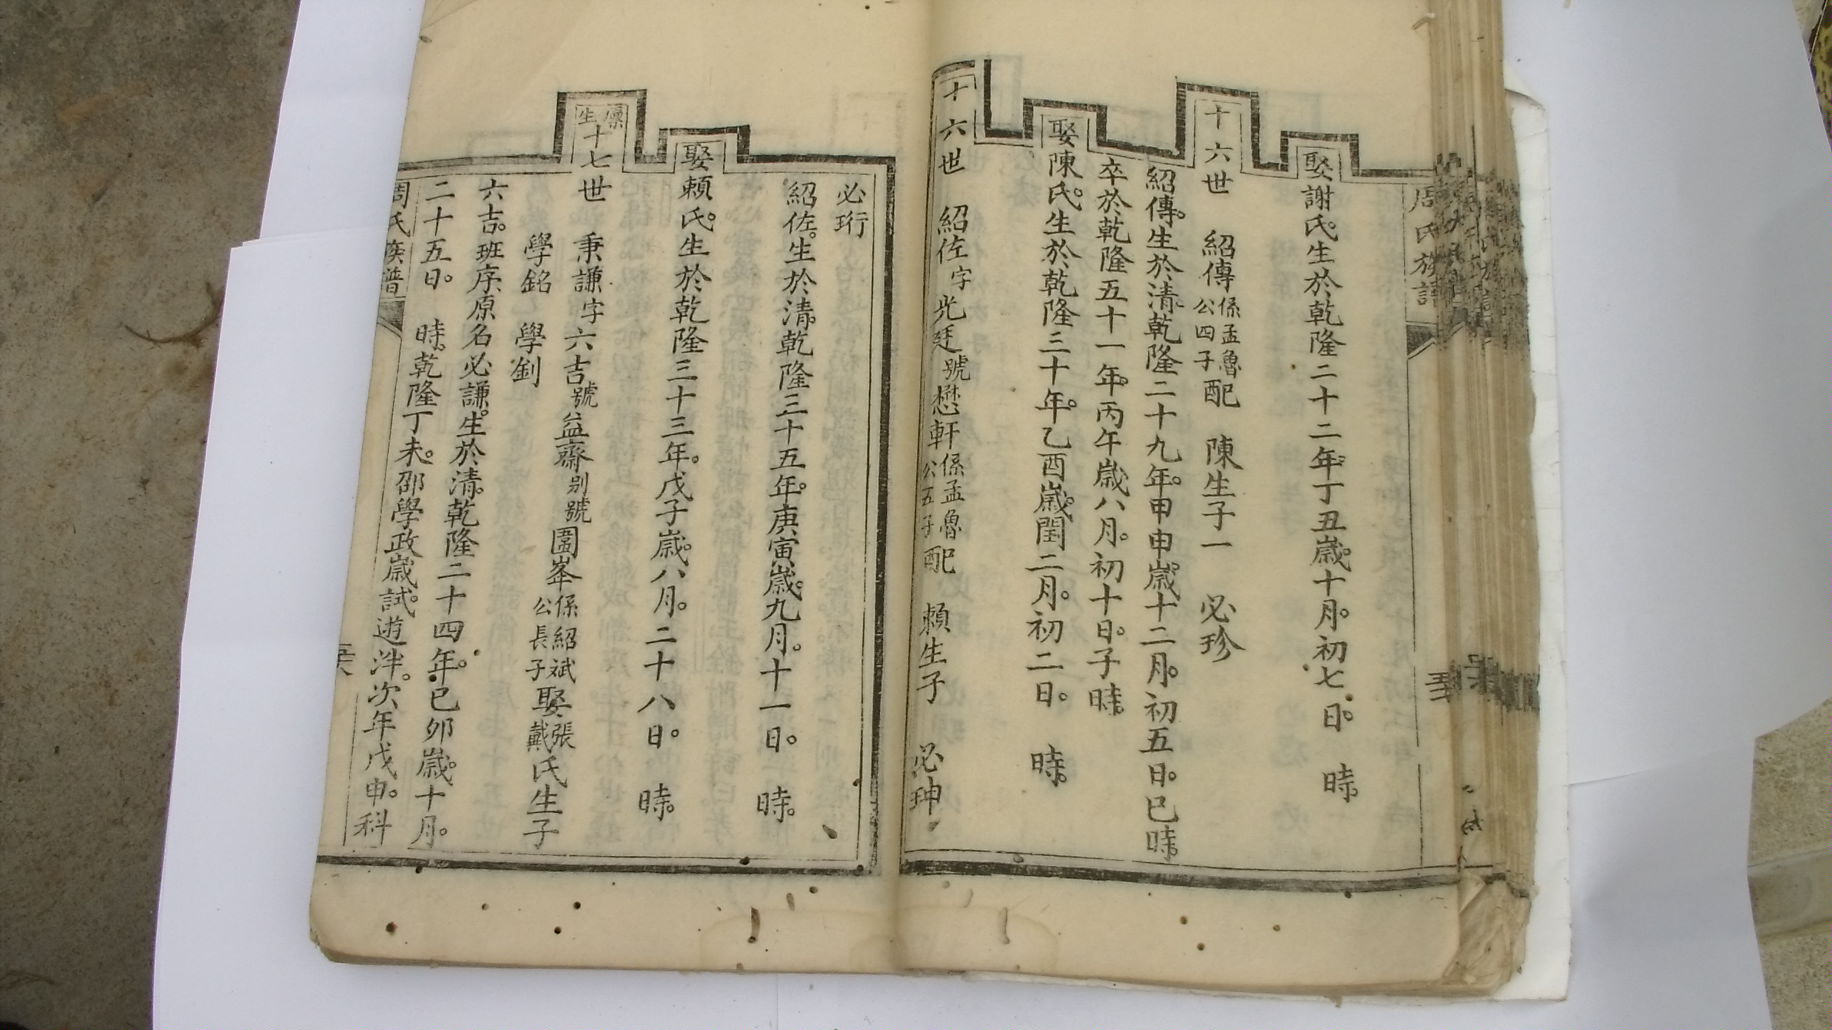 周氏族譜
娶謝氏。生於乾隆二十二年。丁丑歲。十月。初七日。 時。
十六世 紹傳 係孟魯公四子 配 陳生子一 必珍
紹傳。生於清。乾隆二十九年。甲申歲。十二月。初五日。巳時。
卒於乾隆五十一年。丙午歲。八月。初十日。子時。
娶陳氏。生於乾隆三十年。乙酉歲。閏二月。初二日。 時。
十六世 紹佐 字 光廷 號 懋軒 係孟魯公五子 配 賴生子 必珅
必珩
紹佐。生於清。乾隆三十五年。庚寅歲。九月。十一日。 時。
娶賴氏。生於乾隆三十三年。戊子歲。八月。二十八日。 時。
廩生 十七世 秉謙 字 六吉 號 益齋 别號 圍峯 係紹斌公長子 娶 張戴 氏生子
學銘 學劉
六吉。班序。原名必謙。生於清。乾隆二十四年。己卯歲。十月。
二十五日。 時。乾隆丁未。邵學政歲試。遊泮。次年戊申。科
周氏族譜